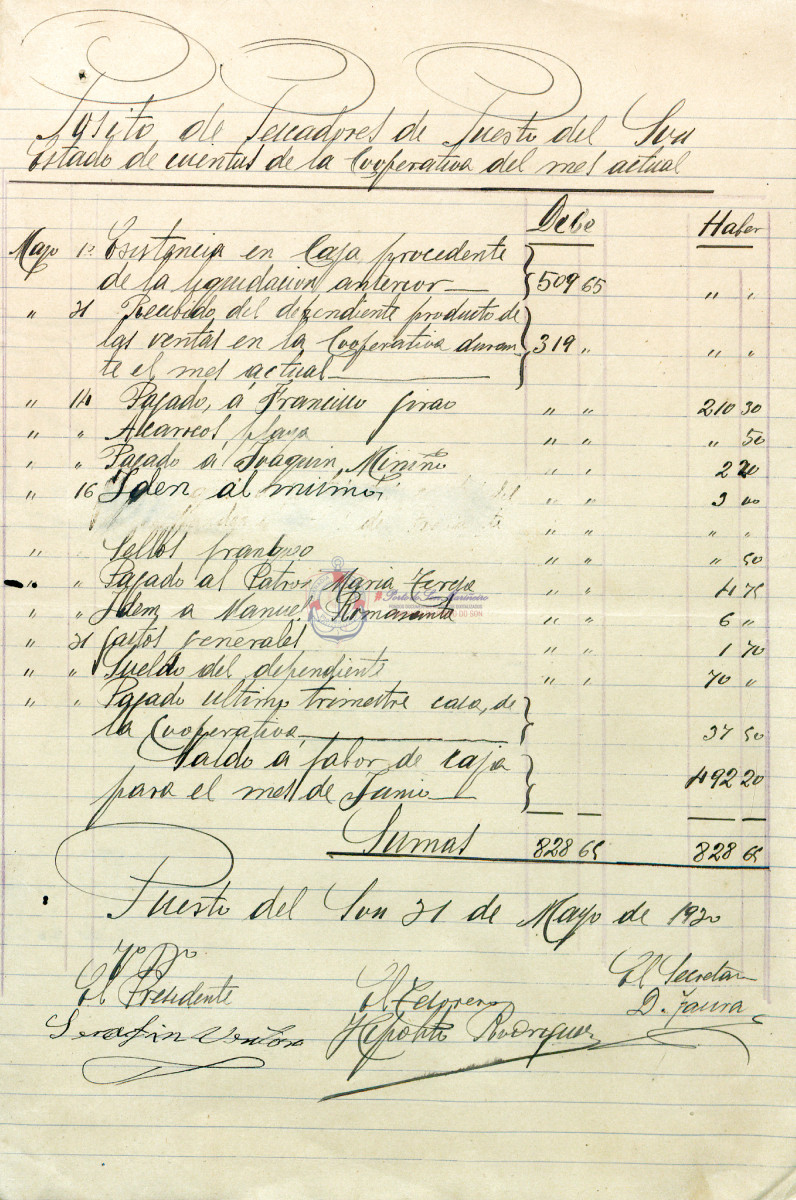 Pósito de Pescadores de Puerto del Son
Estado de cuentas de la Cooperativa del mes actual
Debe Haber
Mayo 1º Esistencia en Caja procedente
de la liquidacion anterior 509 65 " "
" 31 Recibido del dependiente producto de
las ventas en la Cooperativa duran- 319 " " "
te el mes actual
" 14 Pagado, á Francisco " " 210 30
" " Acarreos playa " " " 50
" " Pagado a Joaquin Miniño " " 2 20
" 16 Iden ál mismo " " 3 00
" " " "
" Sellos franqueo " " " 50
" " Pagado al Patron Maria Teresa " " 4 75
" " Idem a Manuel Romasanta " " 6 "
" 31 Gastos generales " " 1 70
" " Sueldo del dependiente " " 70 "
" " Pagado ultimo trimestre casa, de
la Cooperativa 37 50
Saldo á fabor de caja
para el mes de Junio 492 20
Sumas 828 65 828 65
Puerto del Son 31 de Mayo de 1930
Vº Bº
El Presidente El Tesorero El Secretario
Serafin Ventoso Hipolito Rodriguez D. Faura